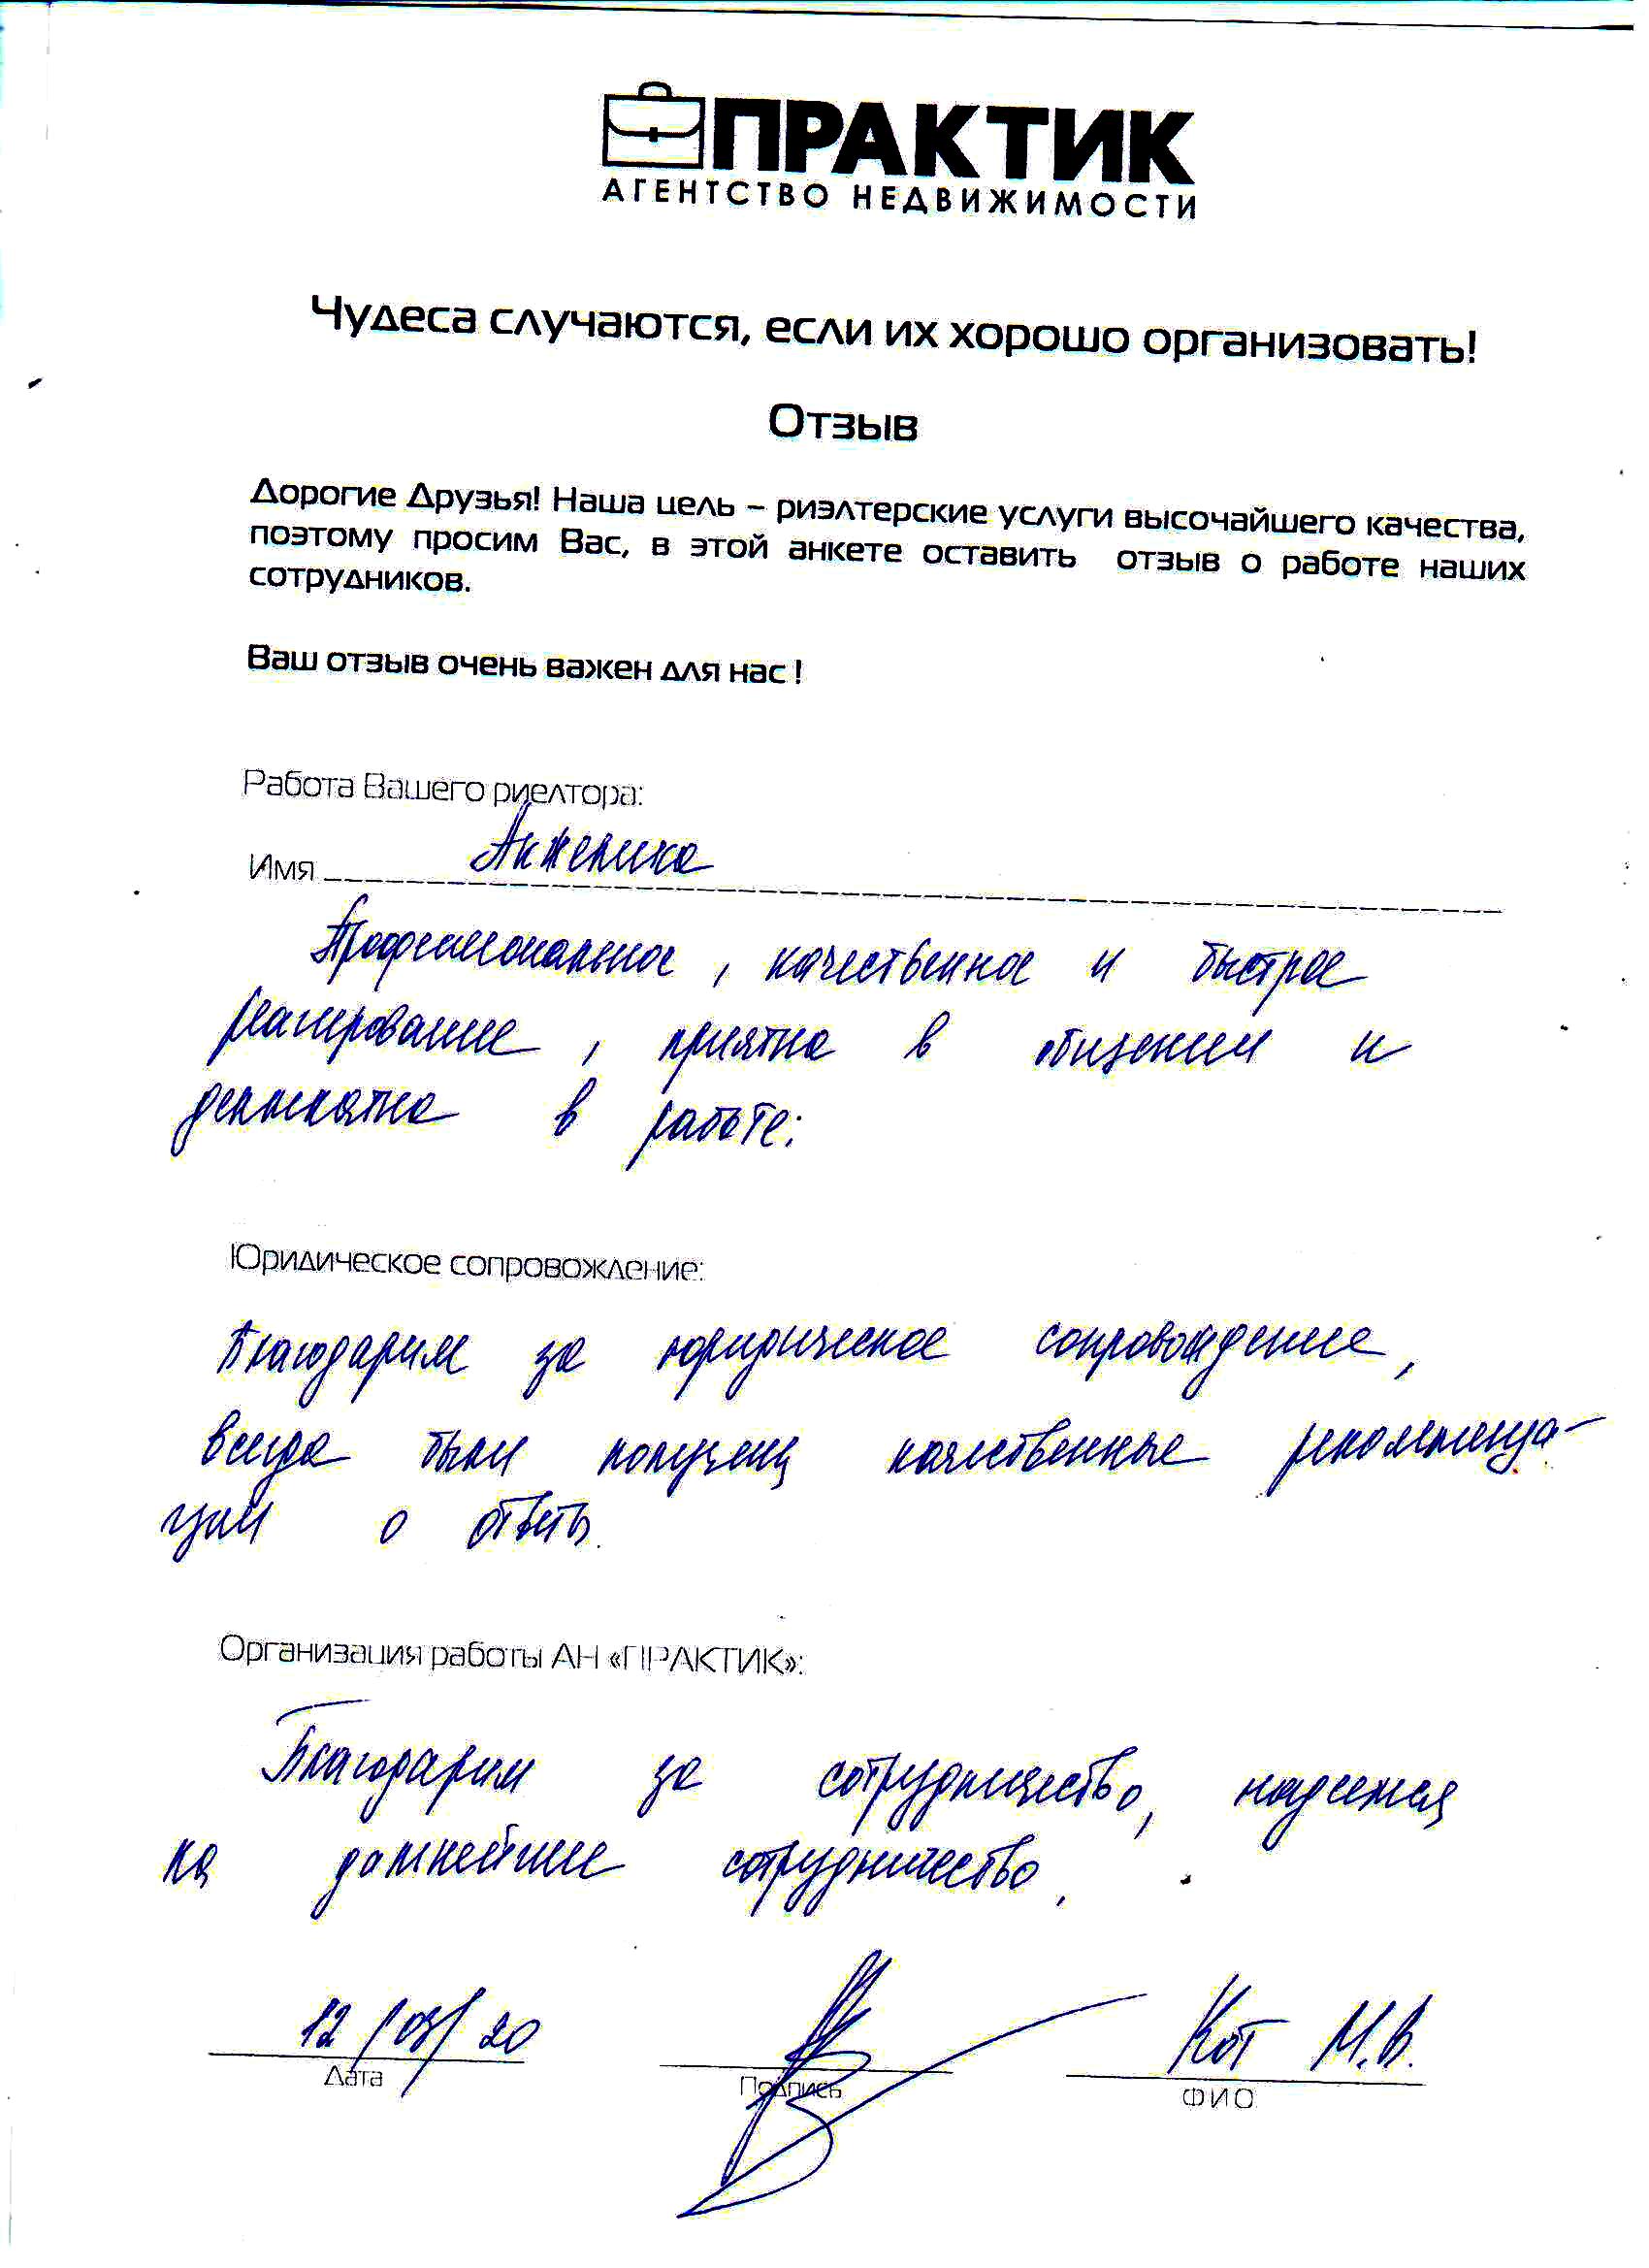 ПРАКТИК
АГЕНТСТВО НЕДВИЖИМОСТИ
Чудеса случаются, если их хорошо организовать!
Отзыв
Дорогие Друзья! Наша цель – риэлтерские услуги высочайшего качества,
поэтому просим Вас, в этой анкете оставить отзыв о работе наших
сотрудников.
Ваш отзыв очень важен для нас !
Работа Вашего риелтора:
Имя Анжелика
Профессиональное, качественное и быстрое
реагирование, приятна в общении и
деликатна в работе.
Юридическое сопровождение:
Благодарим за юридическое сопровождение,
всегда были получены качественные рекоменда-
ции о ответы.
Организация работы АН «ПРАКТИК»:
Благодарим за сотрудничество, надеемся
на дальнейшее сотрудничество.
12/03/20 Кот М.В.
Дата Подпись ФИО